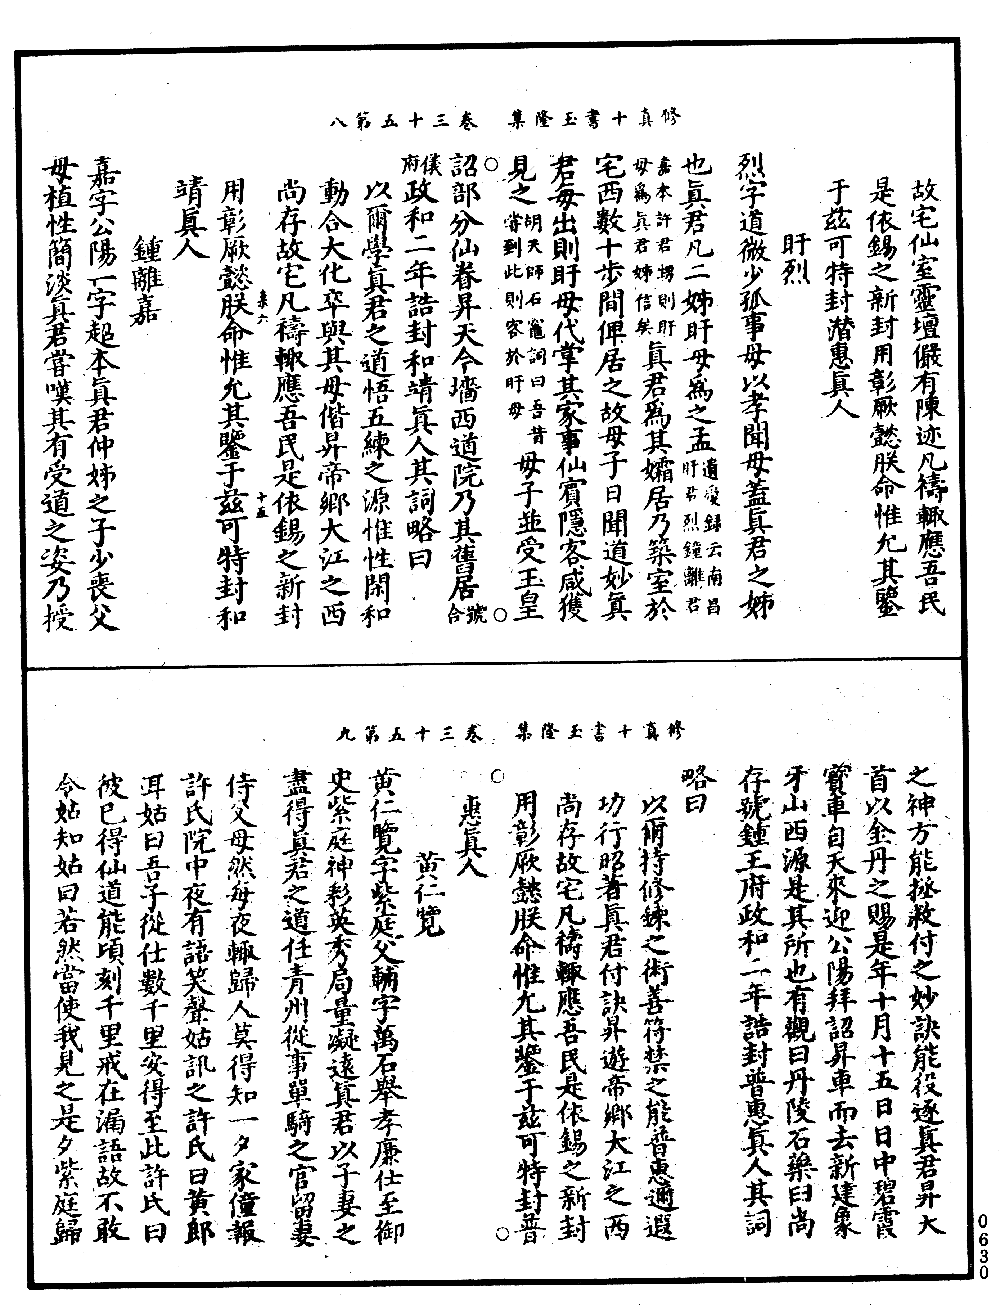 修真十書玉隆集　卷三十五第八
故宅仙室靈壇儼有陳迹凡禱輒應吾民
是依錫之新封用彰厥懿朕命惟允其鑒
于茲可特封潛惠真人
盱烈
烈字道微少孤事母以孝聞母蓋真君之姊
也真君凡二姊盱母為之孟遺愛錄云南昌盱君烈鐘離君
嘉本許君甥則盱母為真君姊信矣真君為其孀居乃築室於
宅西數十步間俾居之故母子日聞道妙真
君每出則盱母代掌其家事仙賓隱客咸獲
見之胡天師石龕詞曰吾昔嘗到此則容於盱母母子並受玉皇
詔部分仙眷昇天今墻西道院乃其舊居號合
僕府政和二年誥封和靖真人其詞略曰
以爾學真君之道悟五練之源惟性閑和
動合大化卒與其母偕昇帝鄉大江之西
尚存故宅凡禱輒應吾民是依錫之新封
集六　十五
用彰厥懿朕命惟允其鑒于茲可特封和
靖真人
鍾離嘉
嘉字公陽一字超本真君仲姊之子少喪父
母植性簡淡真君嘗嘆其有受道之姿乃授
修真十書玉隆集　卷三十五第九
之神方能拯救付之妙訣能役逐真君昇天
首以金丹之賜是年十月十五日日中碧霞
寶車自天來迎公陽拜詔昇車而去新建象
牙山西源是其所也有觀曰丹陵石藥臼尚
存號鍾王府政和二年誥封普惠真人其詞
略曰
以爾特修鍊之術善符禁之能普惠邇遐
功行昭著真君付訣昇遊帝鄉大江之西
尚存故宅凡禱輒應吾民是依錫之新封
用彰厥懿朕命惟允其鑒于茲可特封普
惠真人
黄仁覽
黄仁覽字紫庭父輔字萬石舉孝廉仕至御
史紫庭神彩英秀局量凝遠真君以子妻之
盡得真君之道任青州從事單騎之官留妻
侍父母然每夜輒歸人莫得知一夕家僮報
許氏院中夜有語笑聲姑訊之許氏曰黄郎
耳姑曰吾子從仕數千里安得至此許氏曰
彼已得仙道能頃刻千里戒在漏語故不敢
令姑知姑曰若然當使我見之是夕紫庭歸
0630